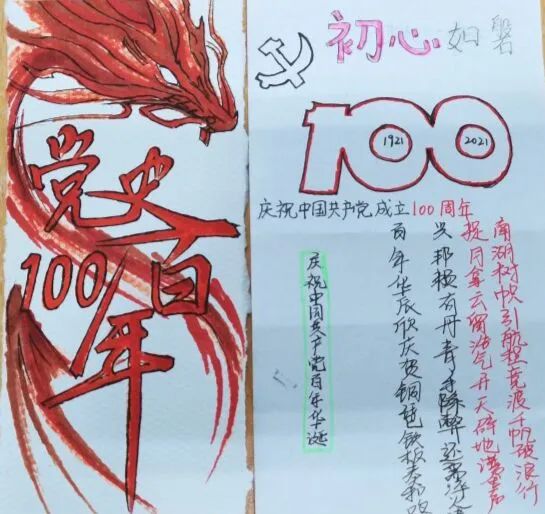 党史百年
100
初心如磐
100
1921
2021
庆祝中国共产党成立100周年
南湖树帜引航程竞波千帆破浪行
捉月拿云留浩气开天辟地
兴邦赖有丹青手除弊还需
百年华辰欣庆贺铜琶铁板奏和
庆祝中国共产党百年华诞